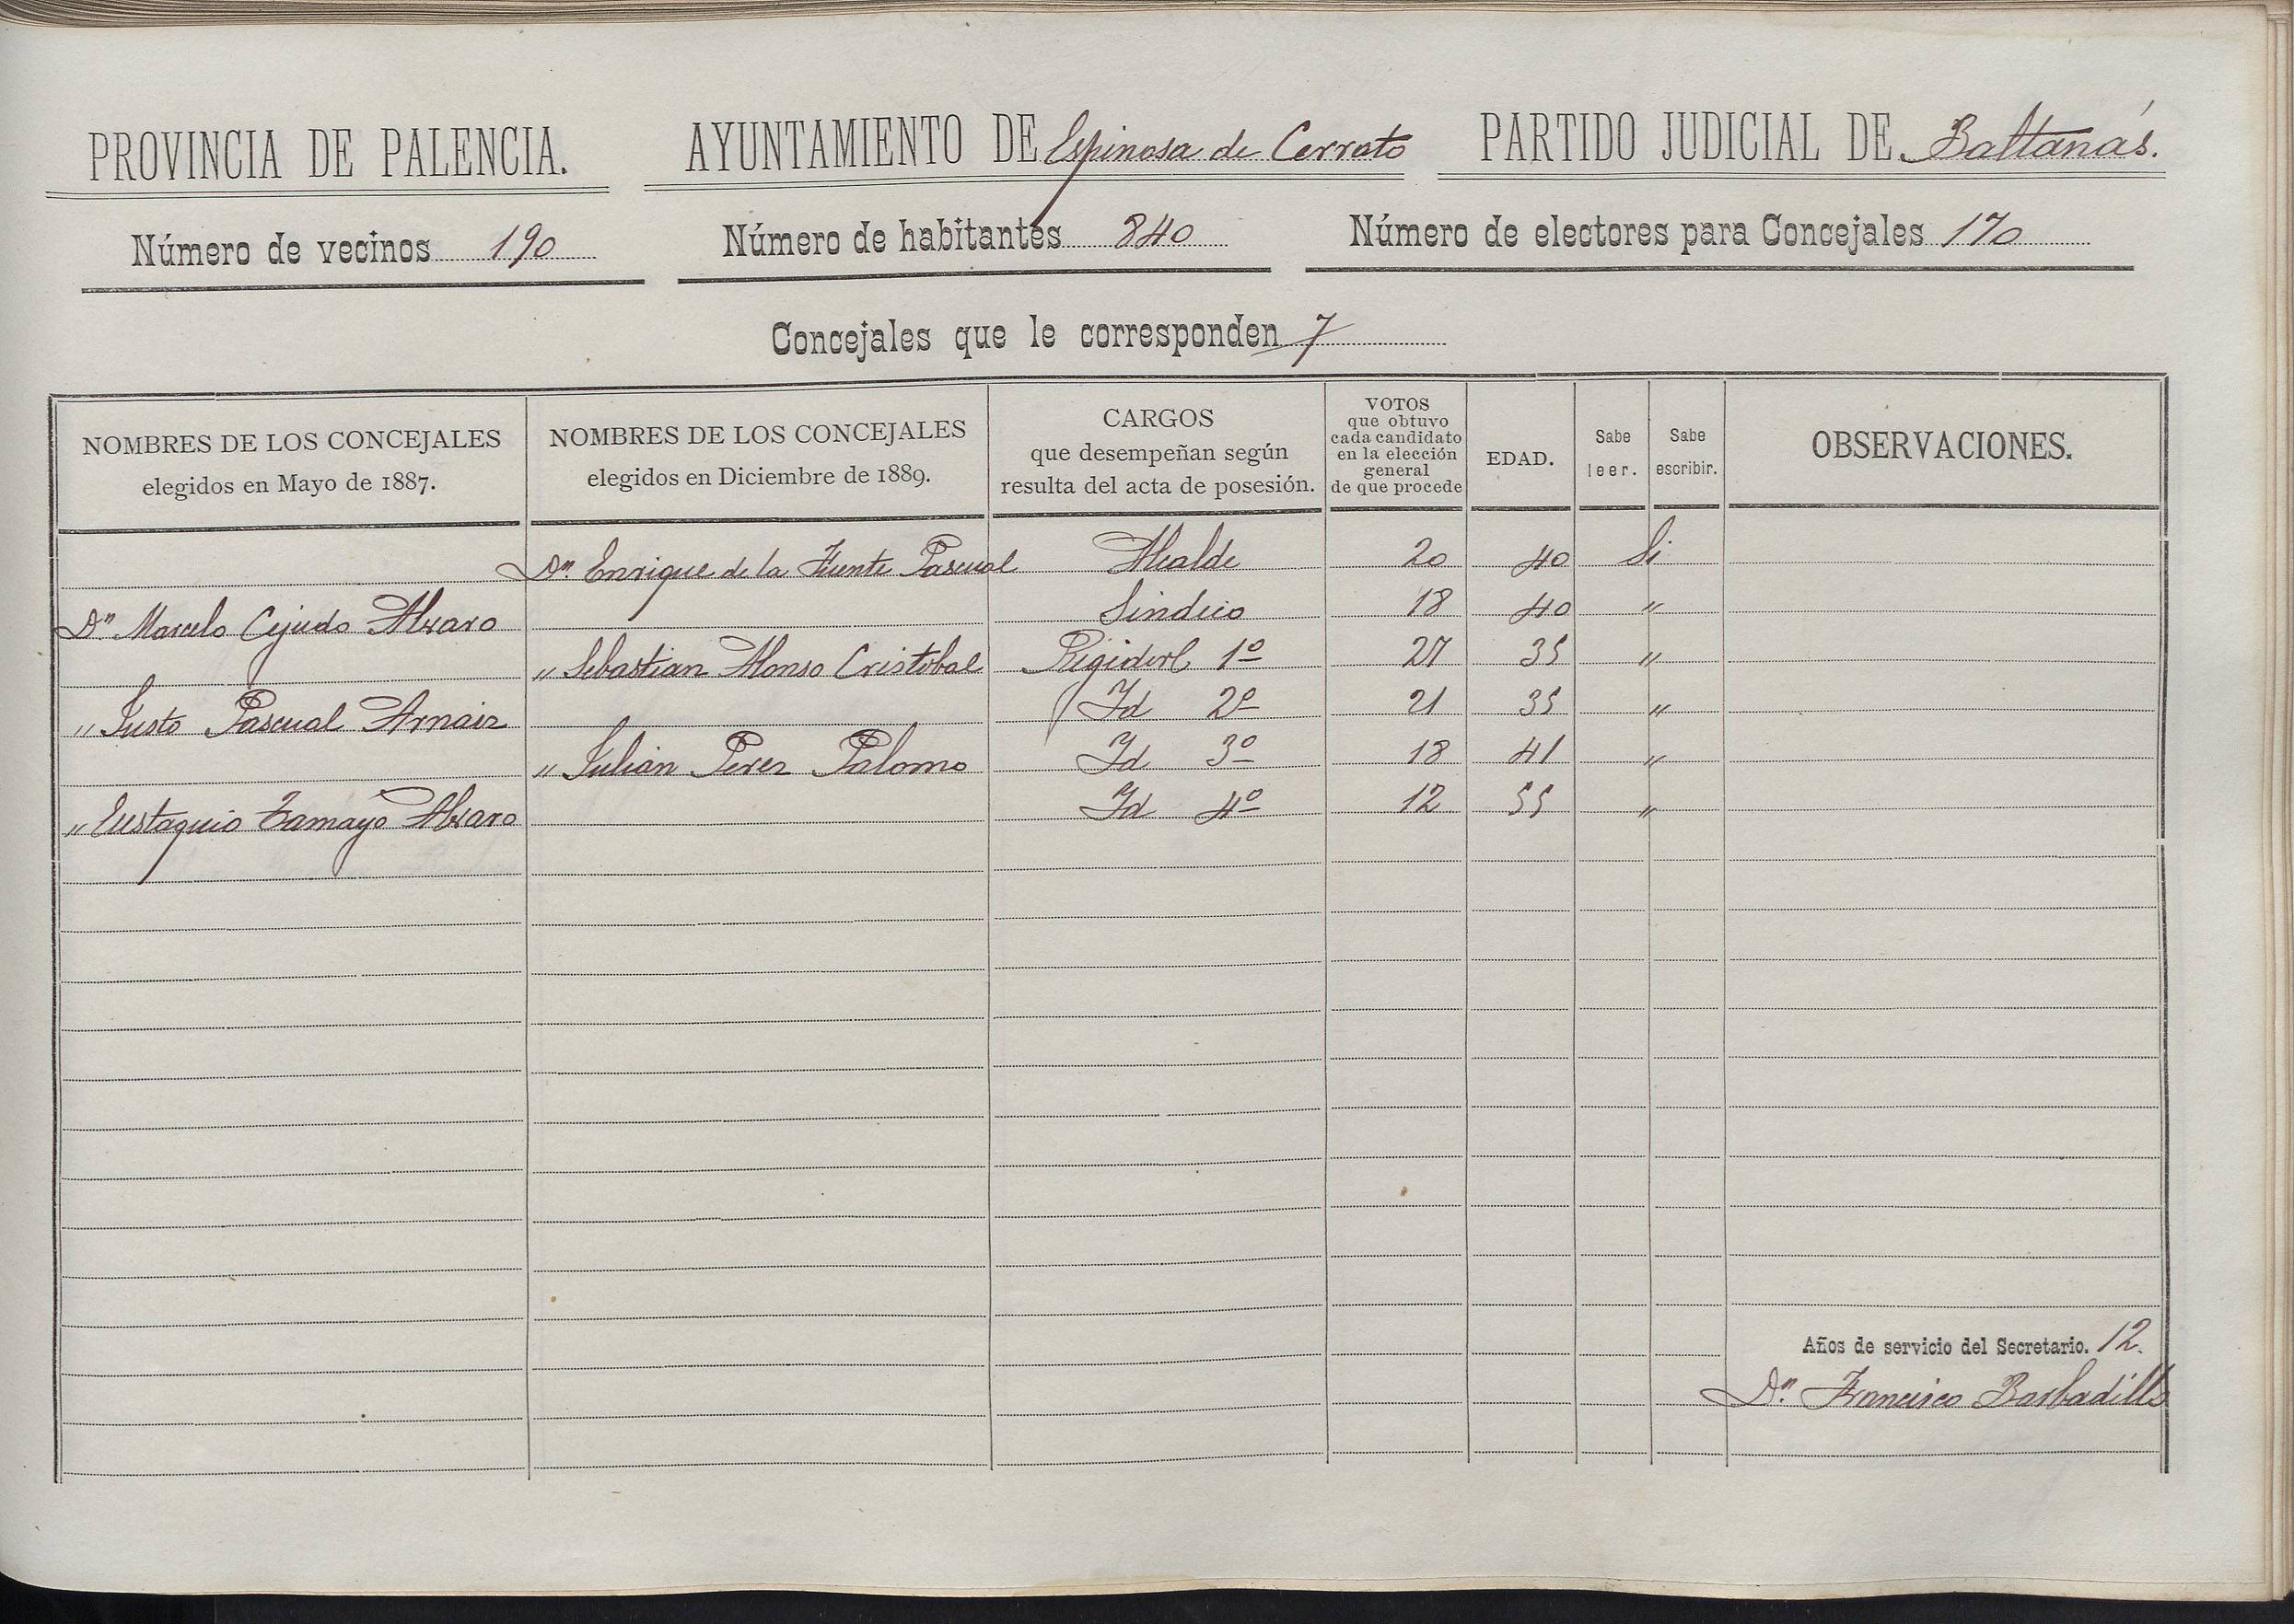 PROVINCIA DE PALENCIA. AYUNTAMIENTO DE Espinosa de Cerrato PARTIDO JUDICIAL DE Baltanás.
Número de vecinos 190 Número de habitantes 840 Número de electores para Concejales 170
Concejales que le corresponden 7
NOMBRES DE LOS CONCEJALES elegidos en Mayo de 1887. NOMBRES DE LOS CONCEJALES elegidos en Diciembre de 1889. CARGOS que desempeñan según resulta del acta de posesión. VOTOS que obtuvo cada candidato en la elección general de que procede EDAD. Sabe leer. Sabe escribir. OBSERVACIONES.
Dn. Enrique de la Fuente Pascual Alcalde 20 40 Si
Dn Marcelo Cejudo Alvaro Sindico 18 40 "
" Sebastian Alonso Cristobal 1º 27 35 "
" Justo Pascual Arnaiz Id 2º 21 35 "
" Julian Perez Palomo Id 3º 18 41 "
" Eustaquio Tamayo Alvaro Id 4º 12 55 "
Años de servicio del Secretario. 12.
Dn. Francisco Barbadillo